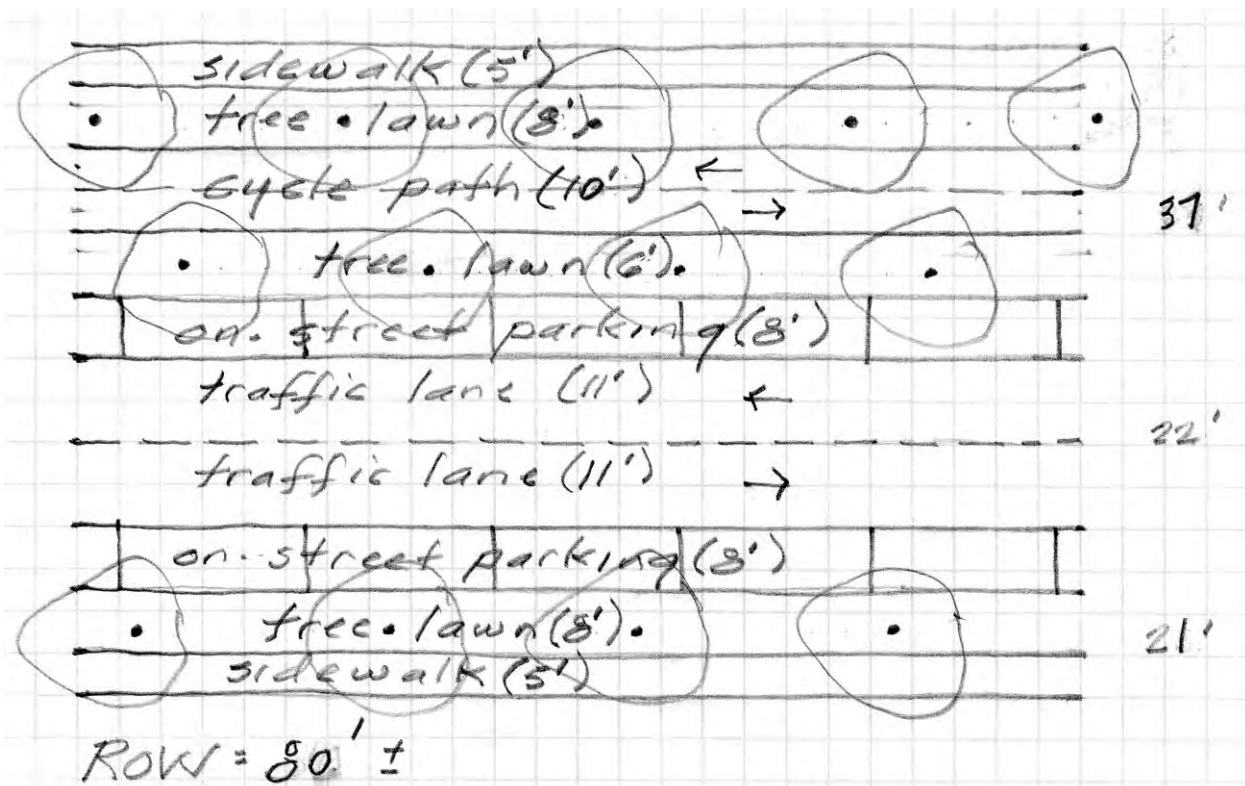 sidewalk (5')
tree lawn (8')
cycle path (10') ←
→
37'
tree lawn (6')
on-street parking (8')
traffic lane (11') ←
22'
traffic lane (11') →
on-street parking (8')
tree lawn (8')
21'
sidewalk (5')
ROW = 80' ±